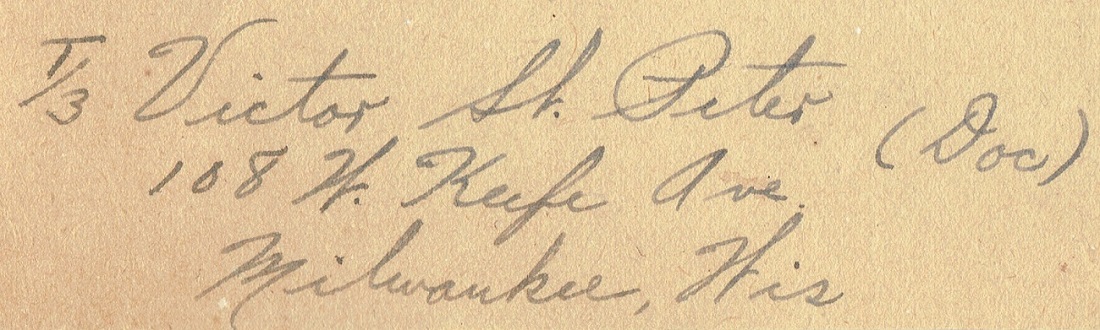 T/3 Victor St. Peter (Doc)
108 W. Keefe Ave.
Milwaukee, Wis